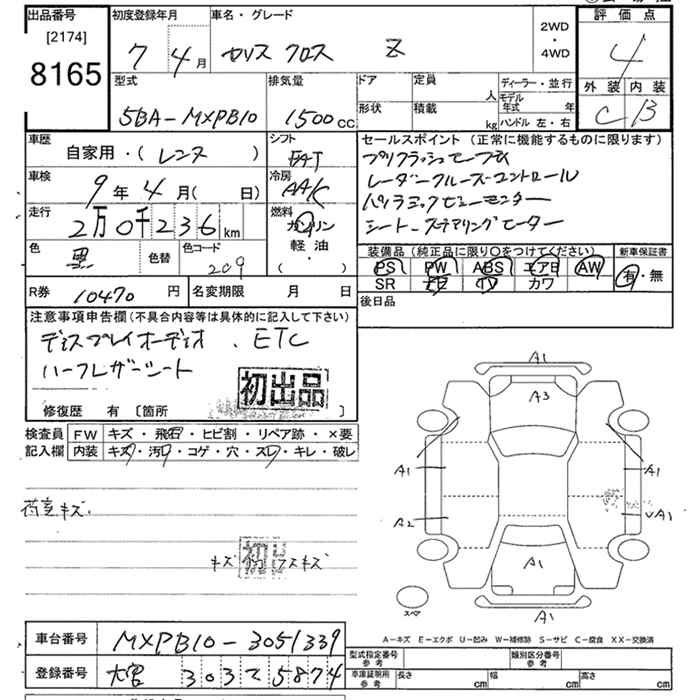 出品番号 初度登録年月 車名・グレード 評価点
[2174]
8165
7 4月 ヤリス クロス Z
2WD
・
4WD
4
外装 内装
C B
型式 排気量 ドア 定員 人 ディーラー・並行
5BA-MXPB10 1500cc 形状 積載 kg モデル年式 年
ハンドル 左・右
車歴 シフト セールスポイント (正常に機能するものに限ります)
自家用・(レンタ ) FAT プリクラッシュセーフティ
車検 冷房 レーダークルーズコントロール
9年4月( 日) AAC パノラミックビューモニター
走行 燃料 シート、ステアリングヒーター
2万0千236km ガソリン
軽油
( ・ )
色 色替 色コード 装備品 (純正品に限り○をつけてください) 新車保証書
黒 209 PS PW ABS エアB AW 有・無
SR カワ
R券 10470円 名変期限 月 日 後日品
注意事項申告欄 (不具合内容等は具体的に記入して下さい)
ディスプレイオーディオ、ETC
ハーフレザーシート
初出品
修復歴 有 〔箇所 〕
検査員 FW キズ・飛石・ヒビ割・リペア跡・×要
記入欄 内装 キズ・汚レ・コゲ・穴・スレ・キレ・破レ
荷室キズ.
キズ 初
A1
A3
A1 A1
A2 UA1
A1
スペア A1
A-キズ E-エクボ U-凹み W-補修跡 S-サビ C-腐食 XX-交換済
車台番号 MXPB10-3051339
型式指定番号 参考 類別区分番号 参考
登録番号 大宮 303 5874
車庫証明用 参考 長さ cm 幅 cm 高さ cm